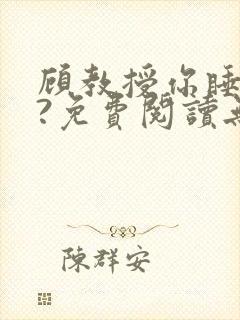 顾教授你睡
?免費閱讀無
陳群安